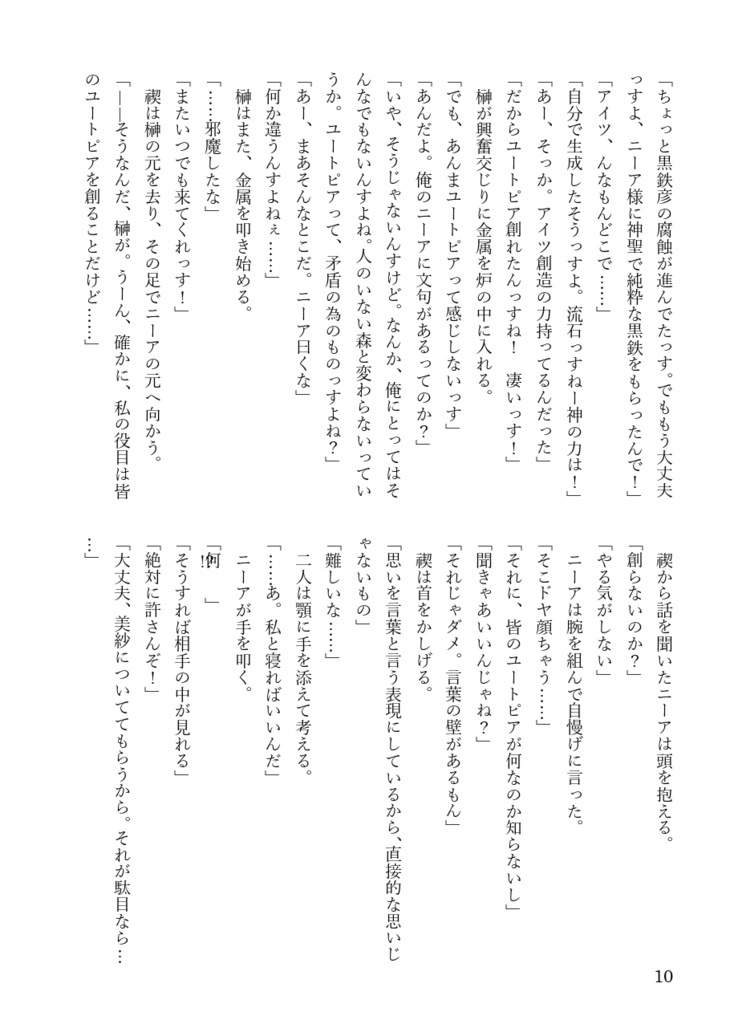 「ちょっと黒鉄彦の腐蝕が進んでたっす。でももう大丈夫
っすよ、ニーア様に神聖で純粋な黒鉄をもらったんで！」
「アイツ、んなもんどこで……」
「自分で生成したそうっすよ。流石っすねー神の力は！」
「あー、そっか。アイツ創造の力持ってるんだった」
「だからユートピア創れたんっすね！　凄いっす！」
　榊が興奮交じりに金属を炉の中に入れる。
「でも、あんまユートピアって感じしないっす」
「あんだよ。俺のニーアに文句があるってのか？」
「いや、そうじゃないんすけど。なんか、俺にとってはそ
んなでもないんすよね。人のいない森と変わらないってい
うか。ユートピアって、矛盾の為のものっすよね？」
「あー、まあそんなとこだ。ニーア曰くな」
「何か違うんすよねぇ……」
　榊はまた、金属を叩き始める。
「……邪魔したな」
「またいつでも来てくれっす！」
　禊は榊の元を去り、その足でニーアの元へ向かう。
「――そうなんだ、榊が。うーん、確かに、私の役目は皆
のユートピアを創ることだけど……」
　禊から話を聞いたニーアは頭を抱える。
「創らないのか？」
「やる気がしない」
　ニーアは腕を組んで自慢げに言った。
「そこドヤ顔ちゃう……」
「それに、皆のユートピアが何なのか知らないし」
「聞きゃあいいんじゃね？」
「それじゃダメ。言葉の壁があるもん」
　禊は首をかしげる。
「思いを言葉と言う表現にしているから、直接的な思いじ
ゃないもの」
「難しいな……」
　二人は顎に手を添えて考える。
「……あ。私と寝ればいいんだ」
　ニーアが手を叩く。
「何!?」
「そうすれば相手の中が見れる」
「絶対に許さんぞ！」
「大丈夫、美紗についててもらうから。それが駄目なら…
…」
10